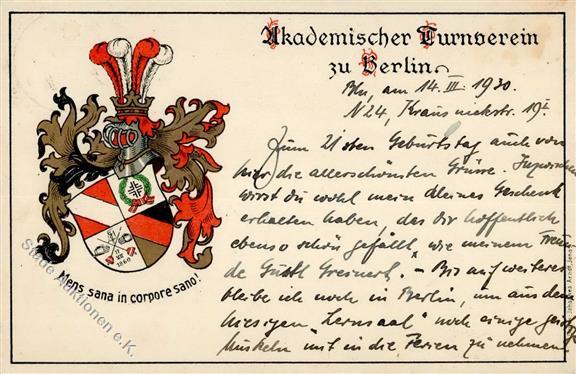 Akademischer Turnverein
zu Berlin
Bln, am 14. III. 1930.
N 24, Krausnickstr. 19 I.
Zum 21sten Geburtstag auch von
hier die allerschönsten Grüsse. Inzwischen
wirst du wohl mein kleines Geschenk
erhalten haben, das dir hoffentlich
ebenso schön gefällt, wie meinem Freun-
de Gustl Greinert. - Bis auf weiteres
bleibe ich noch in Berlin, um aus dem
hiesigen "Lernsaal" noch einige
Muskeln mit in die Ferien zu nehmen.
Mens sana in corpore sano!
Auktionen e.K.